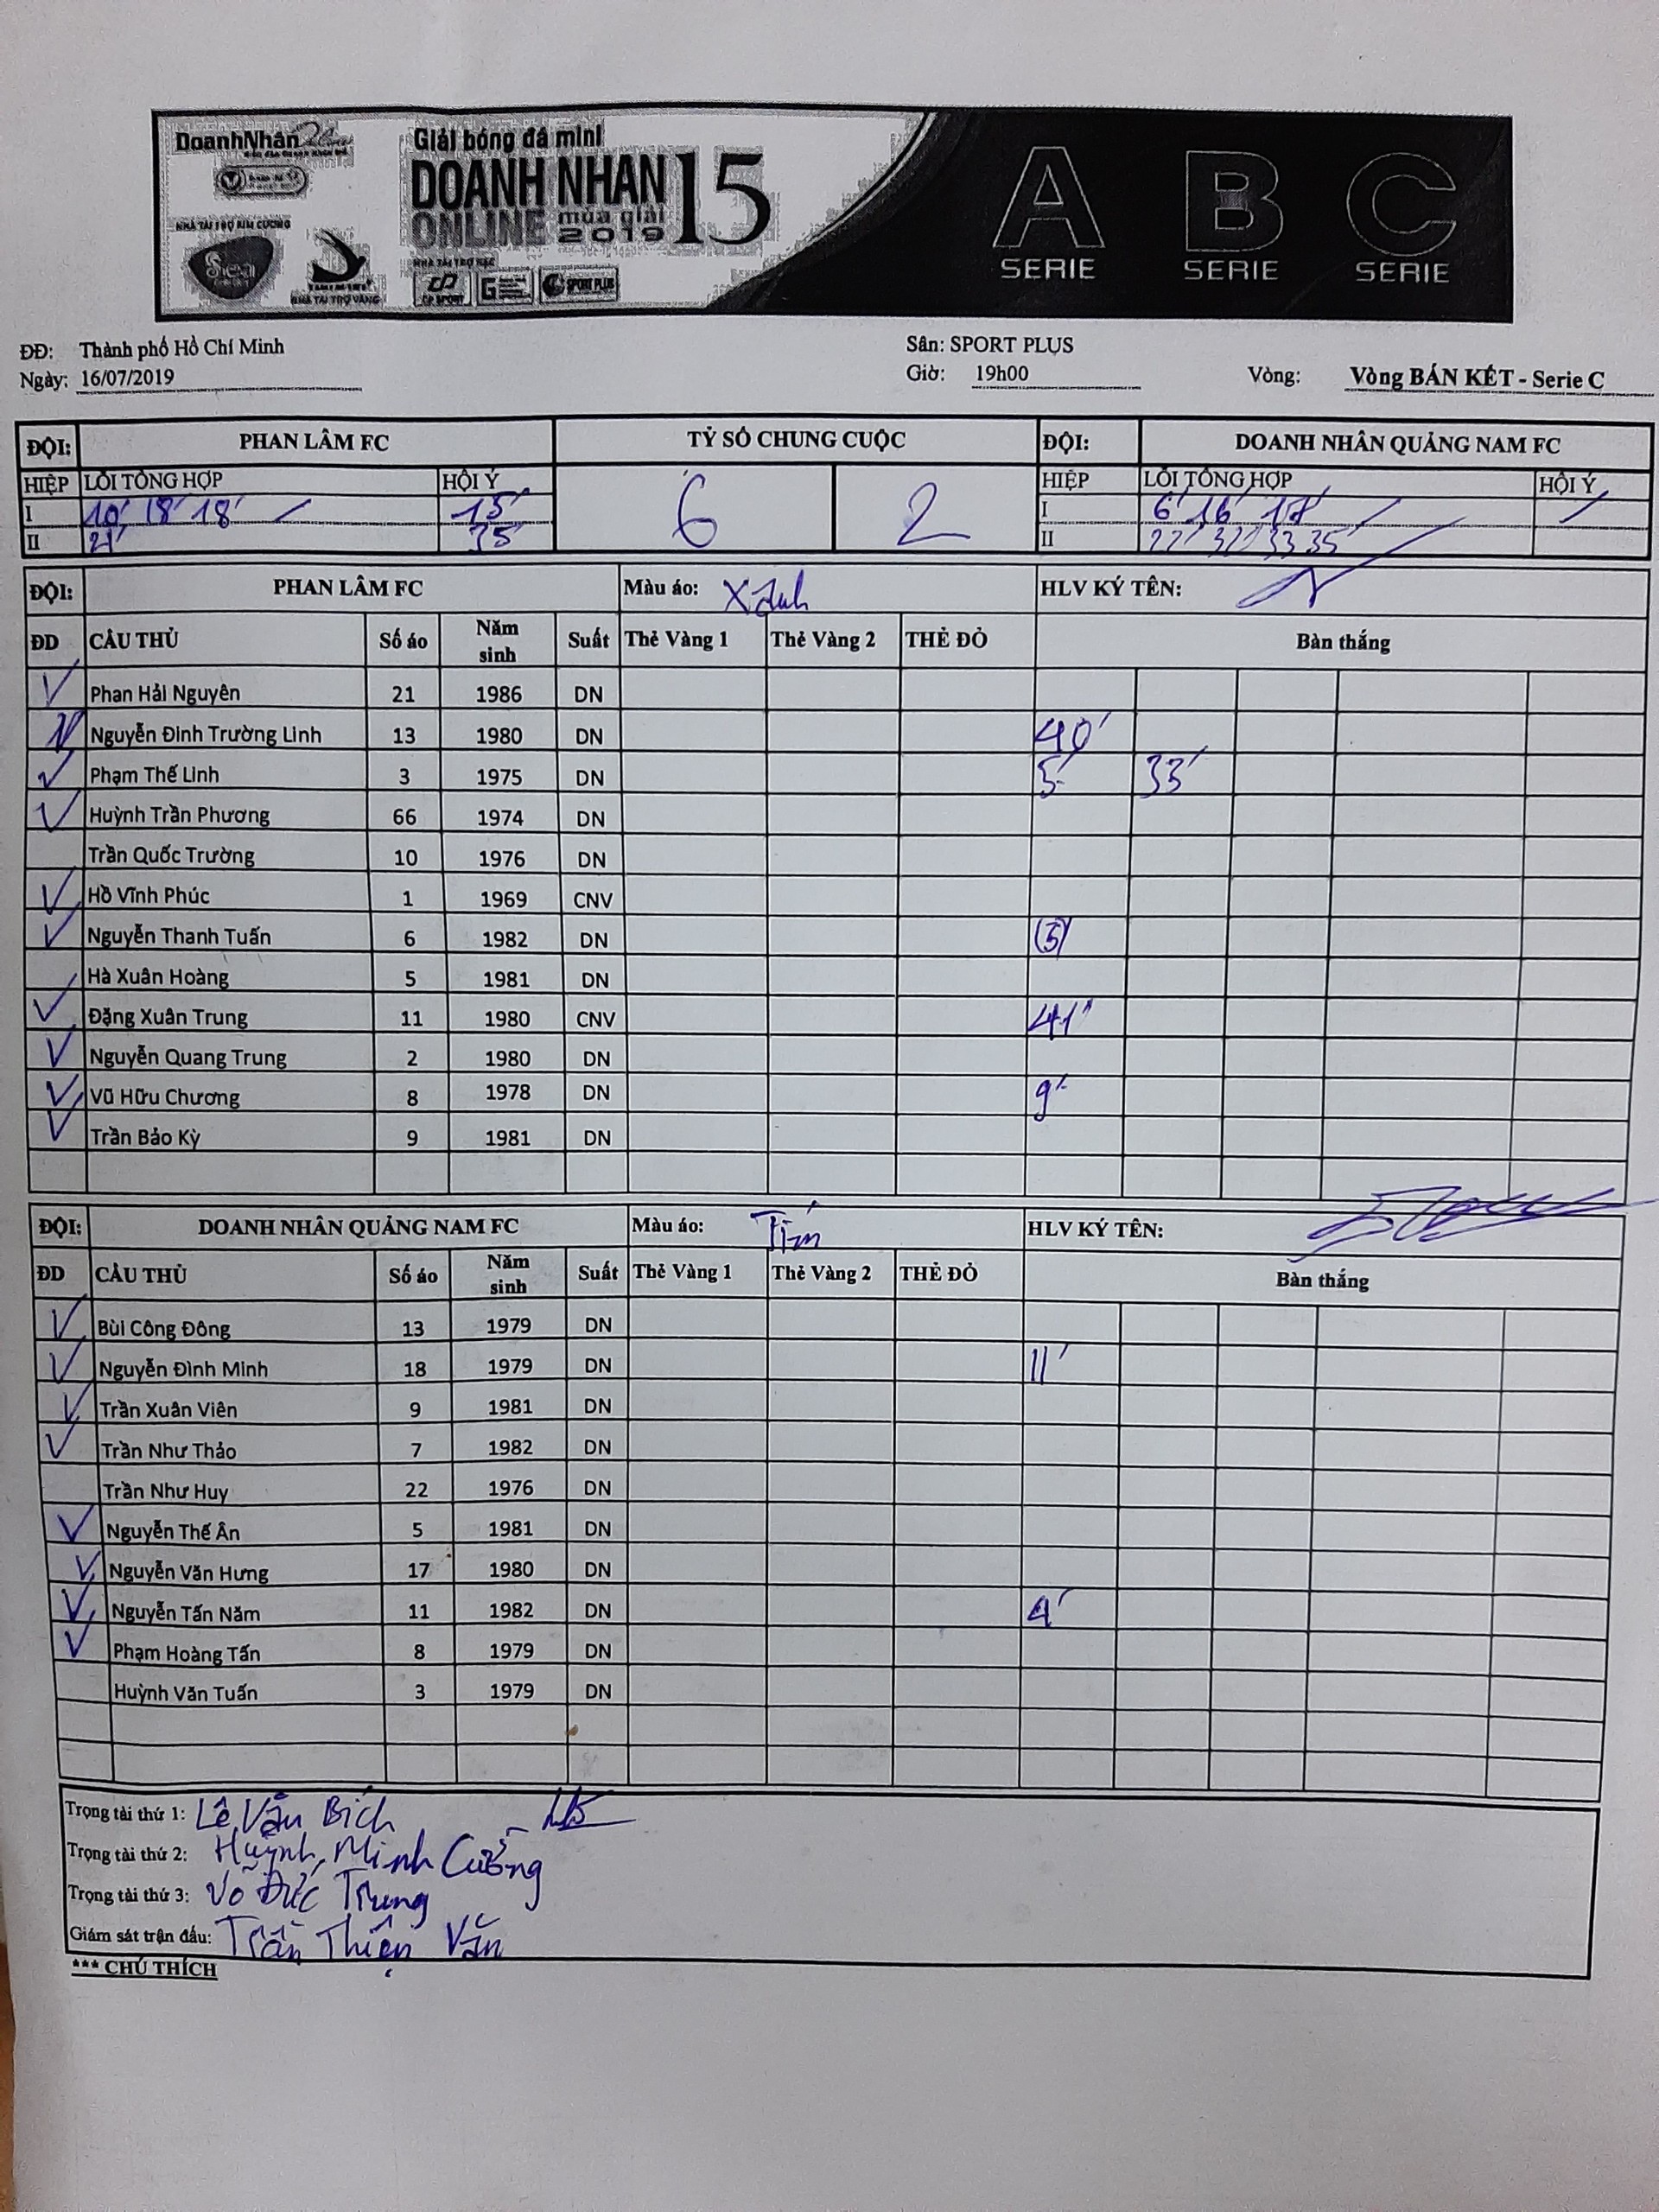 DoanhNhân
Giải bóng đá mini
DOANH NHAN 15
ONLINE mùa giải 2019
NHÀ TÀI TRỢ KIM CƯƠNG
NHÀ TÀI TRỢ VÀNG
NHÀ TÀI TRỢ BẠC
CP SPORT SPORT PLUS
A SERIE B SERIE C SERIE
ĐĐ: Thành phố Hồ Chí Minh Sân: SPORT PLUS
Ngày: 16/07/2019 Giờ: 19h00 Vòng: Vòng BÁN KẾT - Serie C
ĐỘI: PHAN LÂM FC TỶ SỐ CHUNG CUỘC ĐỘI: DOANH NHÂN QUẢNG NAM FC
HIỆP LỖI TỔNG HỢP HỘI Ý 6 2 HIỆP LỖI TỔNG HỢP HỘI Ý
I 10' 18' 18' 15' I 6' 16' 17'
II 21' 35' II 22' 32' 33 35'
ĐỘI: PHAN LÂM FC Màu áo: Xanh HLV KÝ TÊN:
ĐD CẦU THỦ Số áo Năm sinh Suất Thẻ Vàng 1 Thẻ Vàng 2 THẺ ĐỎ Bàn thắng
Phan Hải Nguyên 21 1986 DN
Nguyễn Đinh Trường Linh 13 1980 DN 40'
Phạm Thế Linh 3 1975 DN 5' 33'
Huỳnh Trần Phương 66 1974 DN
Trần Quốc Trường 10 1976 DN
Hồ Vĩnh Phúc 1 1969 CNV
Nguyễn Thanh Tuấn 6 1982 DN (5)'
Hà Xuân Hoàng 5 1981 DN
Đặng Xuân Trung 11 1980 CNV 41'
Nguyễn Quang Trung 2 1980 DN
Vũ Hữu Chương 8 1978 DN 9'
Trần Bảo Kỳ 9 1981 DN
ĐỘI: DOANH NHÂN QUẢNG NAM FC Màu áo: Tím HLV KÝ TÊN:
ĐD CẦU THỦ Số áo Năm sinh Suất Thẻ Vàng 1 Thẻ Vàng 2 THẺ ĐỎ Bàn thắng
Bùi Công Đông 13 1979 DN
Nguyễn Đình Minh 18 1979 DN 11'
Trần Xuân Viên 9 1981 DN
Trần Như Thảo 7 1982 DN
Trần Như Huy 22 1976 DN
Nguyễn Thế Ân 5 1981 DN
Nguyễn Văn Hưng 17 1980 DN
Nguyễn Tấn Năm 11 1982 DN 4'
Phạm Hoàng Tấn 8 1979 DN
Huỳnh Văn Tuấn 3 1979 DN
Trọng tài thứ 1: Lê Văn Bích
Trọng tài thứ 2: Huỳnh Minh Cường
Trọng tài thứ 3: Võ Đức Trung
Giám sát trận đấu: Trần Thiện Văn
*** CHÚ THÍCH